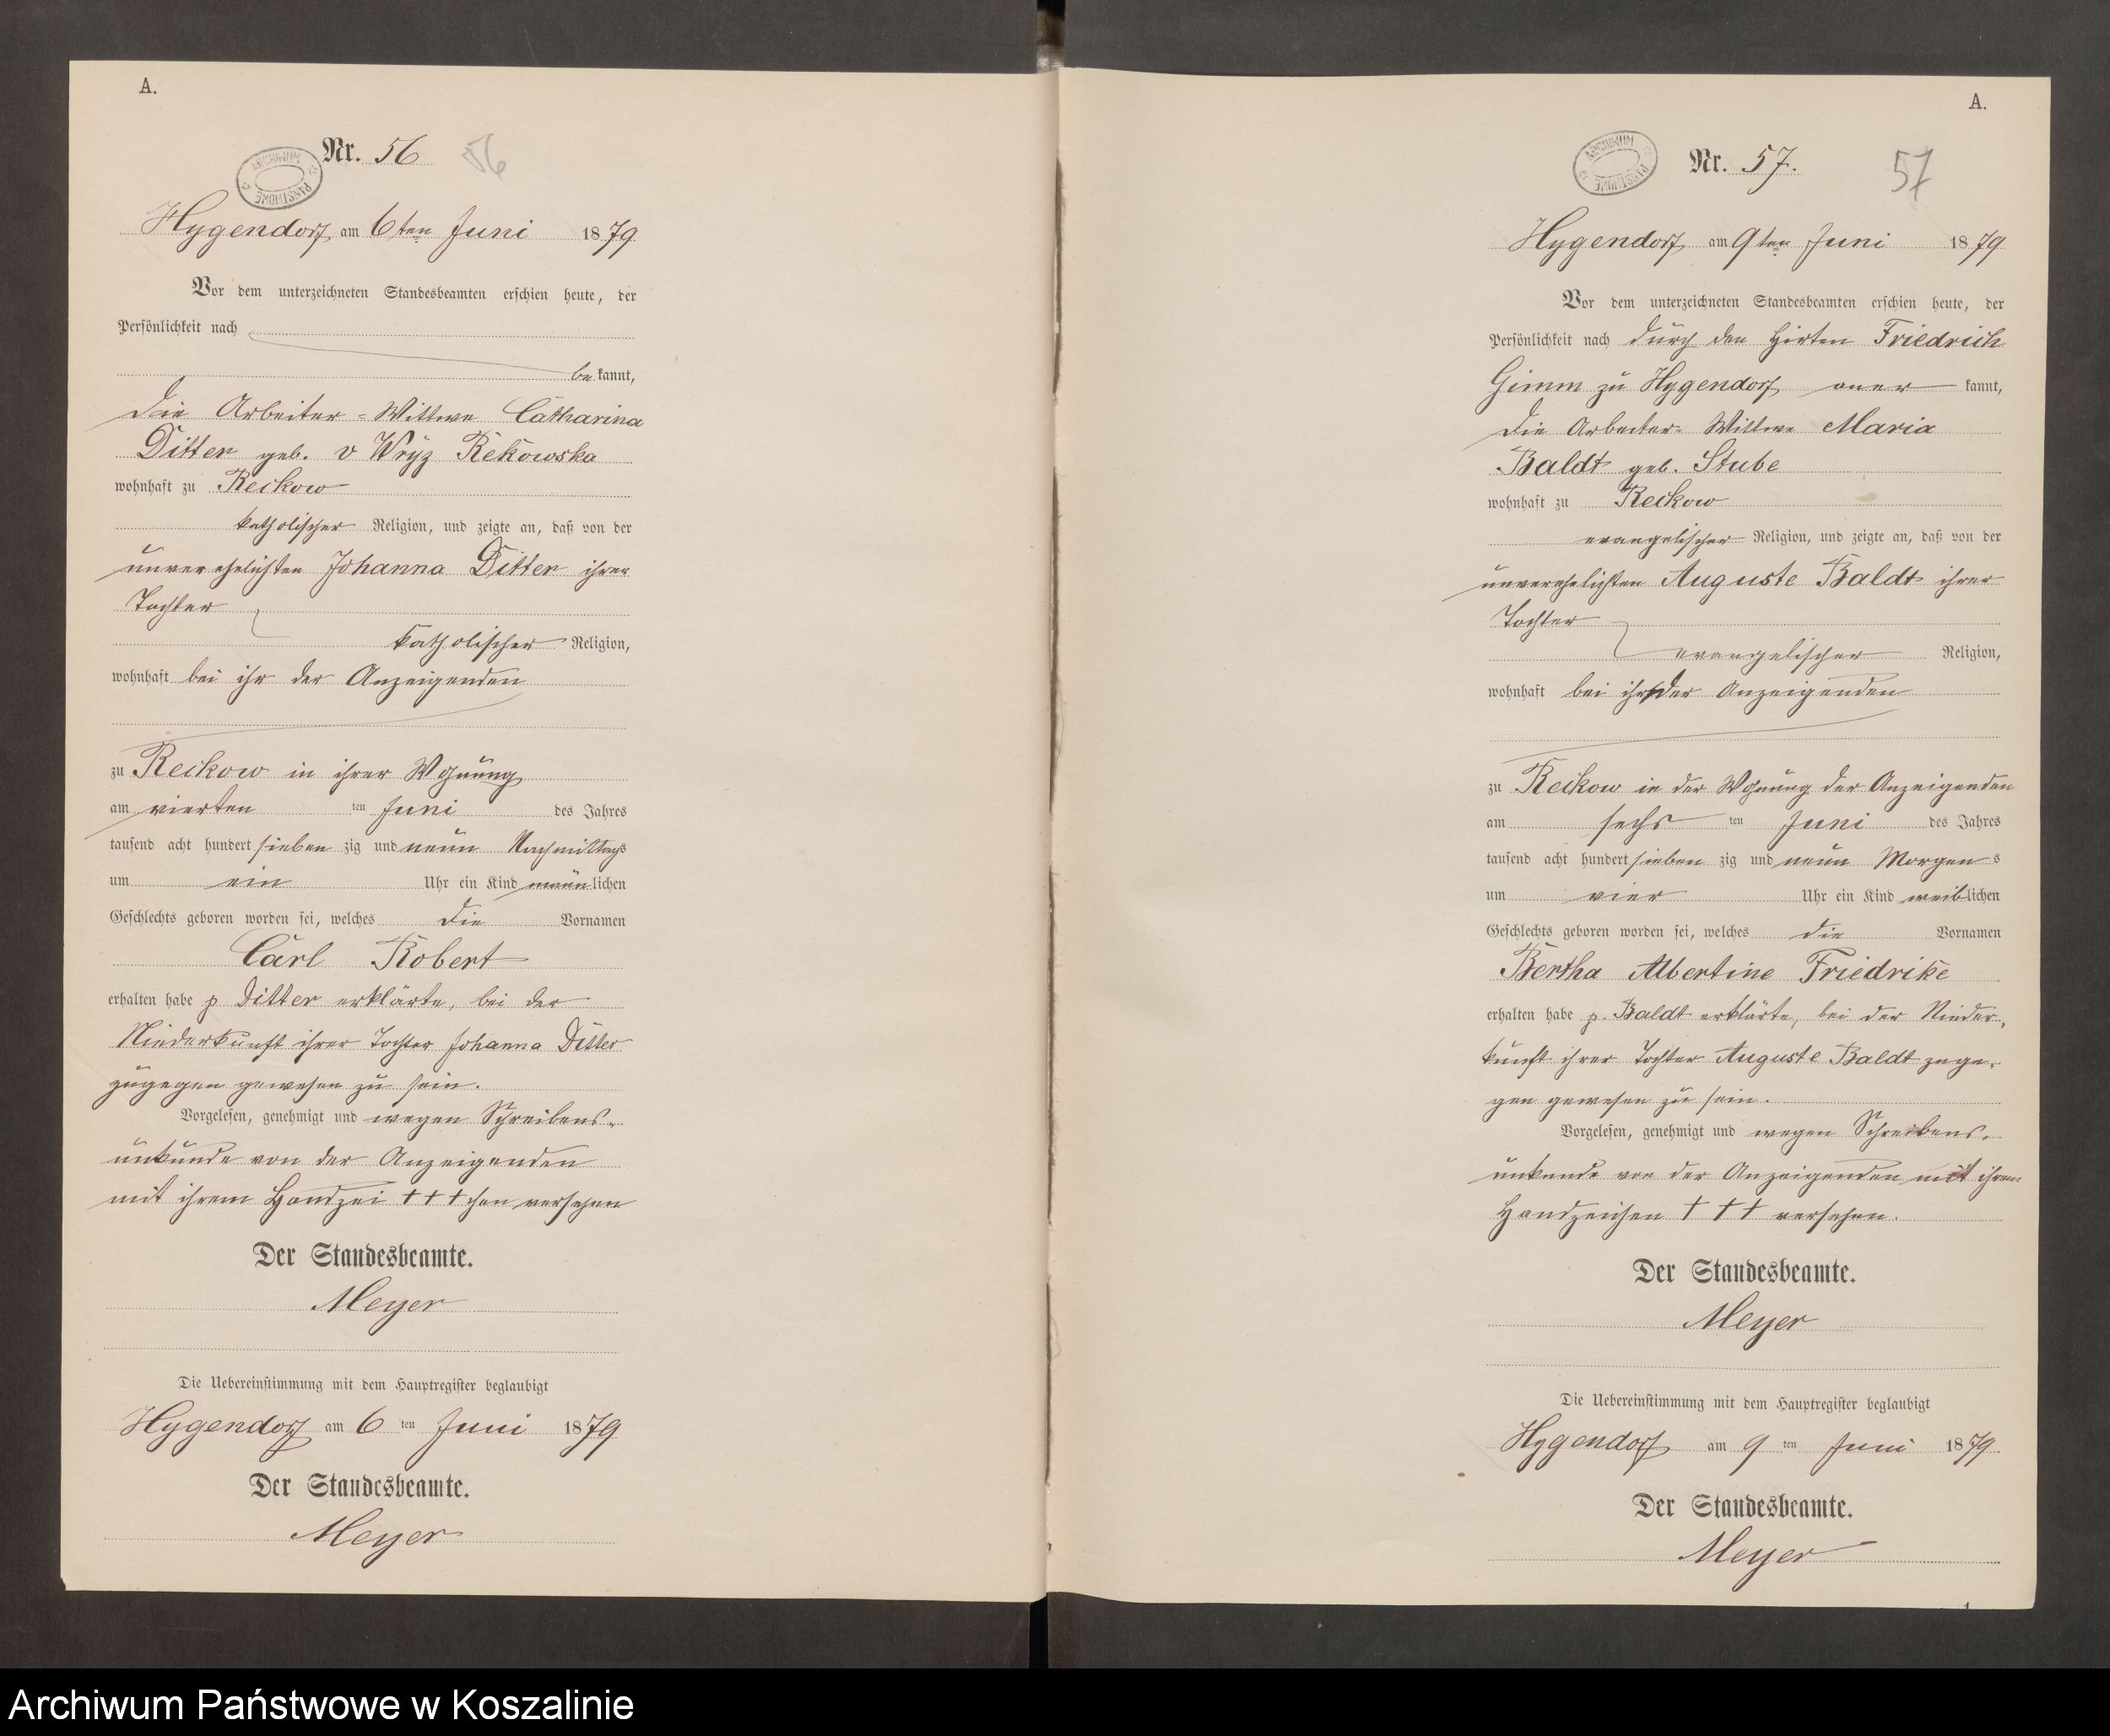 A.
Nr. 56
56
ARCHIWUM PAŃSTWOWE
Hygendorf am 6ten Juni 1879
Vor dem unterzeichneten Standesbeamten erschien heute, der
Persönlichkeit nach
bekannt,
die Arbeiter-Wittwe Catharina
Ditter geb. v Wryz Rekowska
wohnhaft zu Reckow
katholischer Religion, und zeigte an, daß von der
unverehelichten Johanna Ditter ihrer
Tochter
katholischer Religion,
wohnhaft bei ihr der Anzeigenden
zu Reckow in ihrer Wohnung
am vierten ten Juni des Jahres
tausend acht hundert sieben zig und neun Nachmittags
um ein Uhr ein Kind männlichen
Geschlechts geboren worden sei, welches die Vornamen
Carl Robert
erhalten habe p Ditter erklärte, bei der
Niederkunft ihrer Tochter Johanna Ditter
zugegen gewesen zu sein.
Vorgelesen, genehmigt und wegen Schreibens-
unkunde von der Anzeigenden
mit ihrem Handzei +++ chen versehen
Der Standesbeamte.
Meyer
Die Uebereinstimmung mit dem Hauptregister beglaubigt
Hygendorf am 6 ten Juni 1879
Der Standesbeamte.
Meyer
A.
Nr. 57.
57
ARCHIWUM PAŃSTWOWE
Hygendorf am 9ten Juni 1879
Vor dem unterzeichneten Standesbeamten erschien heute, der
Persönlichkeit nach durch den Hirten Friedrich
Gimm zu Hygendorf aner kannt,
die Arbeiter-Wittwe Maria
Baldt geb. Stube
wohnhaft zu Reckow
evangelischer Religion, und zeigte an, daß von der
unverehelichten Auguste Baldt ihrer
Tochter
evangelischer Religion,
wohnhaft bei ihr der Anzeigenden
zu Reckow in der Wohnung der Anzeigenden
am sechs ten Juni des Jahres
tausend acht hundert sieben zig und neun Morgens
um vier Uhr ein Kind weiblichen
Geschlechts geboren worden sei, welches die Vornamen
Bertha Albertine Friedrike
erhalten habe p. Baldt erklärte, bei der Nieder-
kunft ihrer Tochter Auguste Baldt zuge-
gen gewesen zu sein.
Vorgelesen, genehmigt und wegen Schreibens-
unkunde von der Anzeigenden mit ihrem
Handzeichen +++ versehen.
Der Standesbeamte.
Meyer
Die Uebereinstimmung mit dem Hauptregister beglaubigt
Hygendorf am 9 ten Juni 1879
Der Standesbeamte.
Meyer
Archiwum Państwowe w Koszalinie